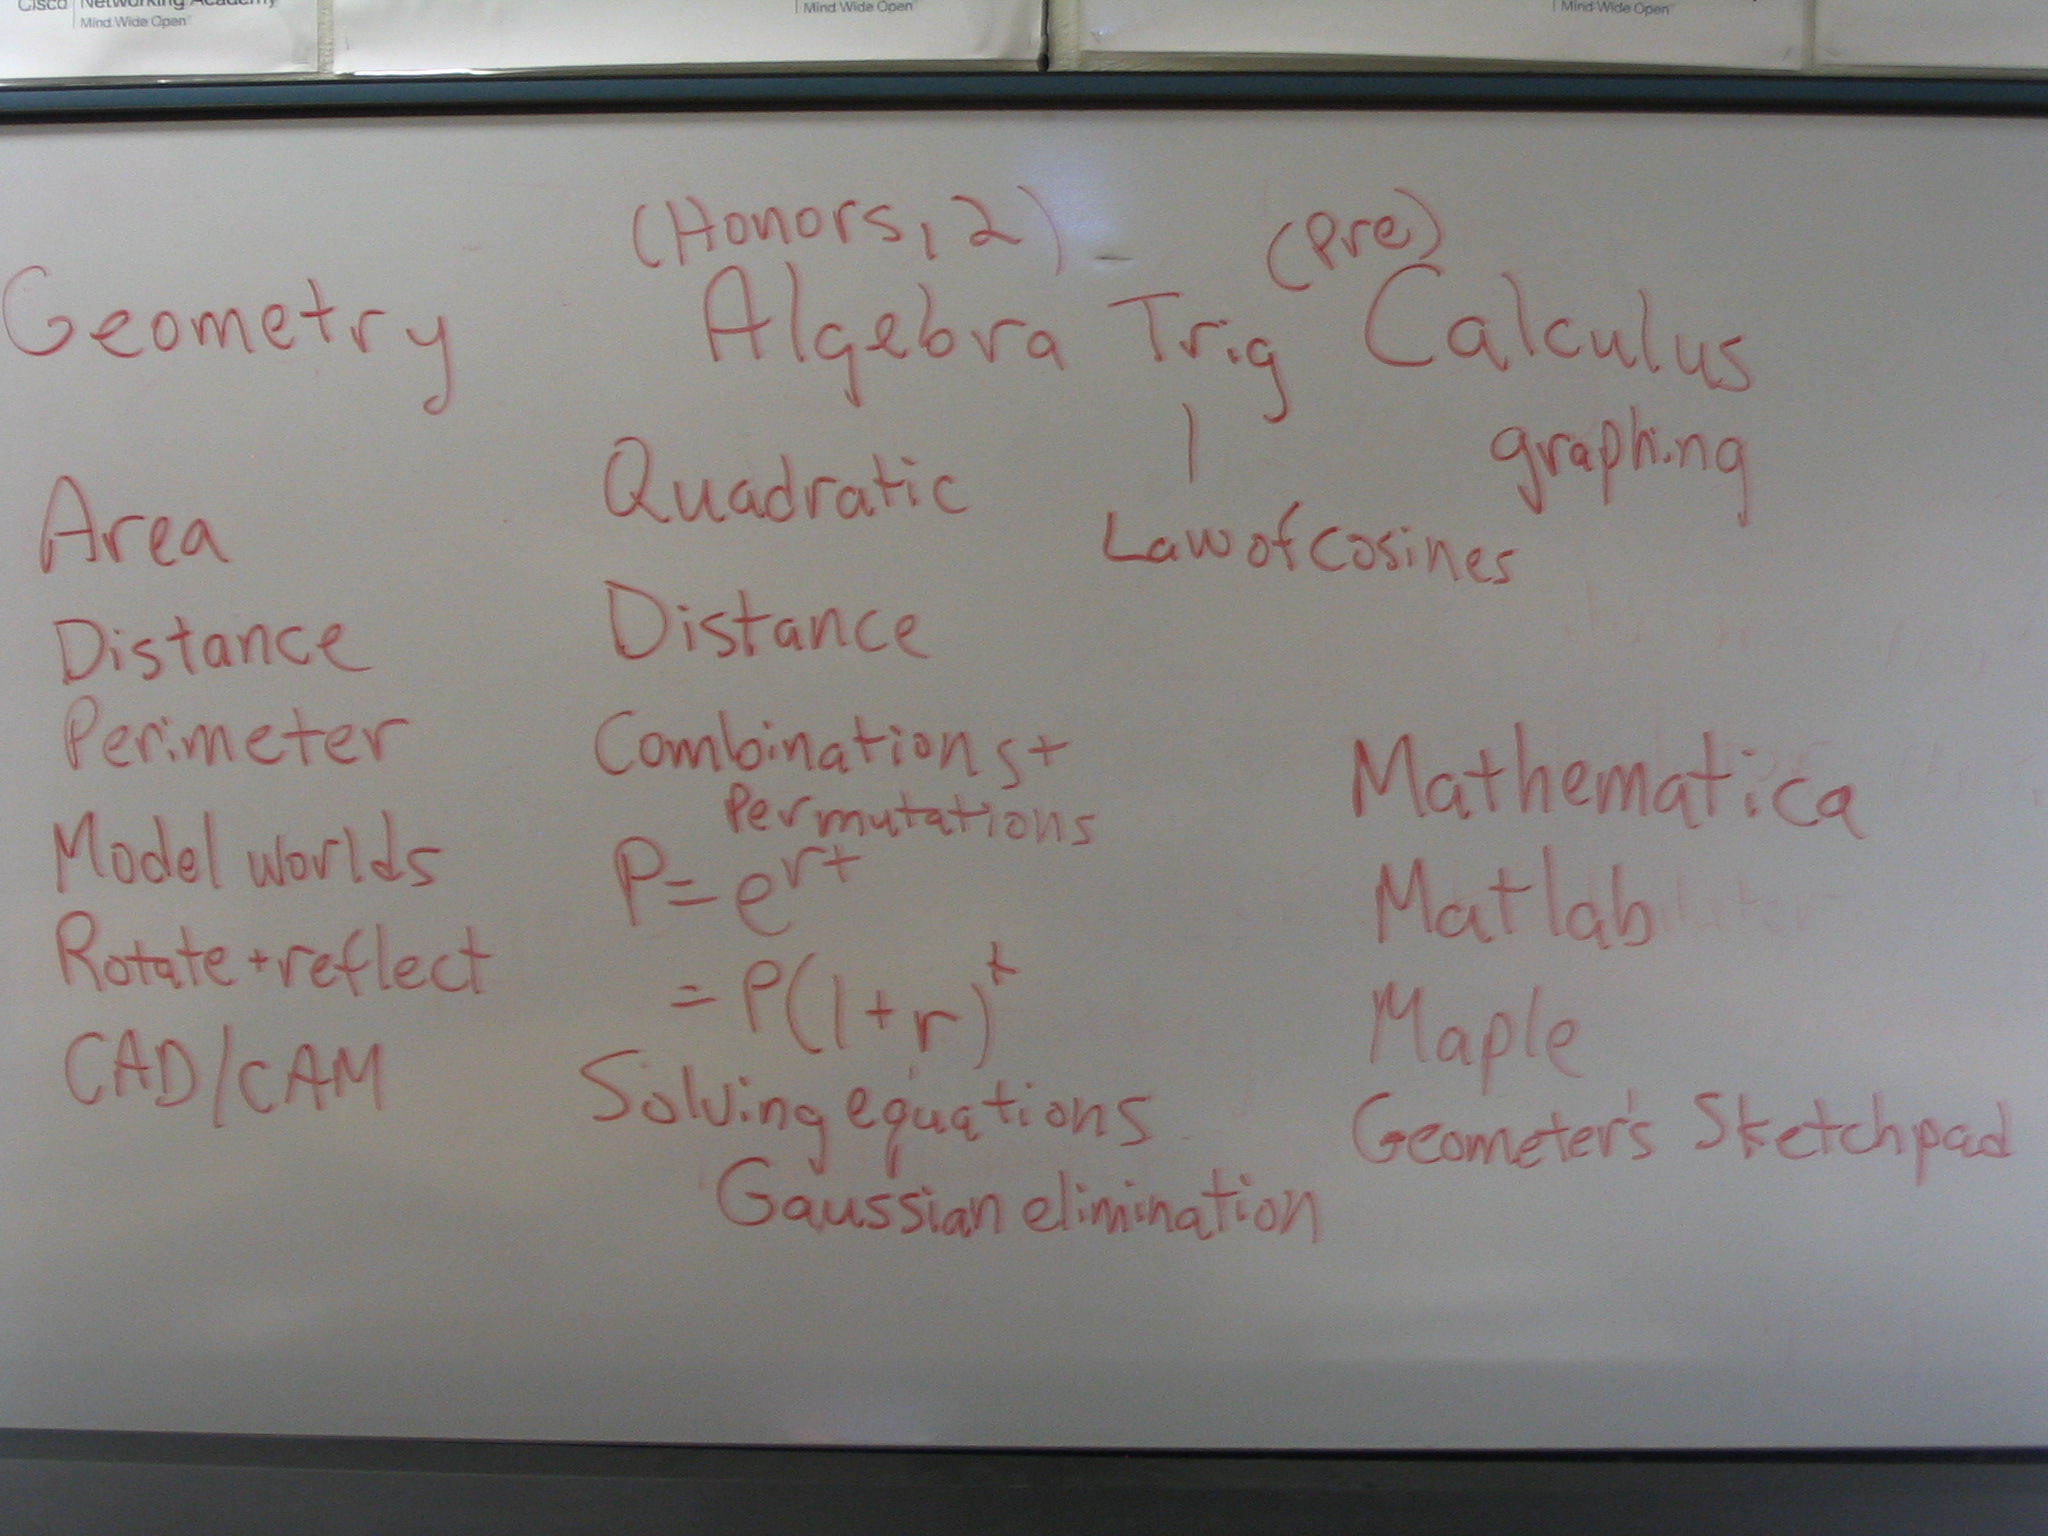 Cisco Networking Academy
Mind Wide Open
Mind Wide Open
Mind Wide Open
(Honors, 2)
(Pre)
Geometry
Algebra
Trig
Calculus
Area
Distance
Perimeter
Model worlds
Rotate + reflect
CAD/CAM
Quadratic
Distance
Combinations +
Permutations
P = e^rt
= P(1+r)^t
Solving equations
Gaussian elimination
Law of cosines
graphing
Mathematica
Matlab
Maple
Geometer's Sketchpad